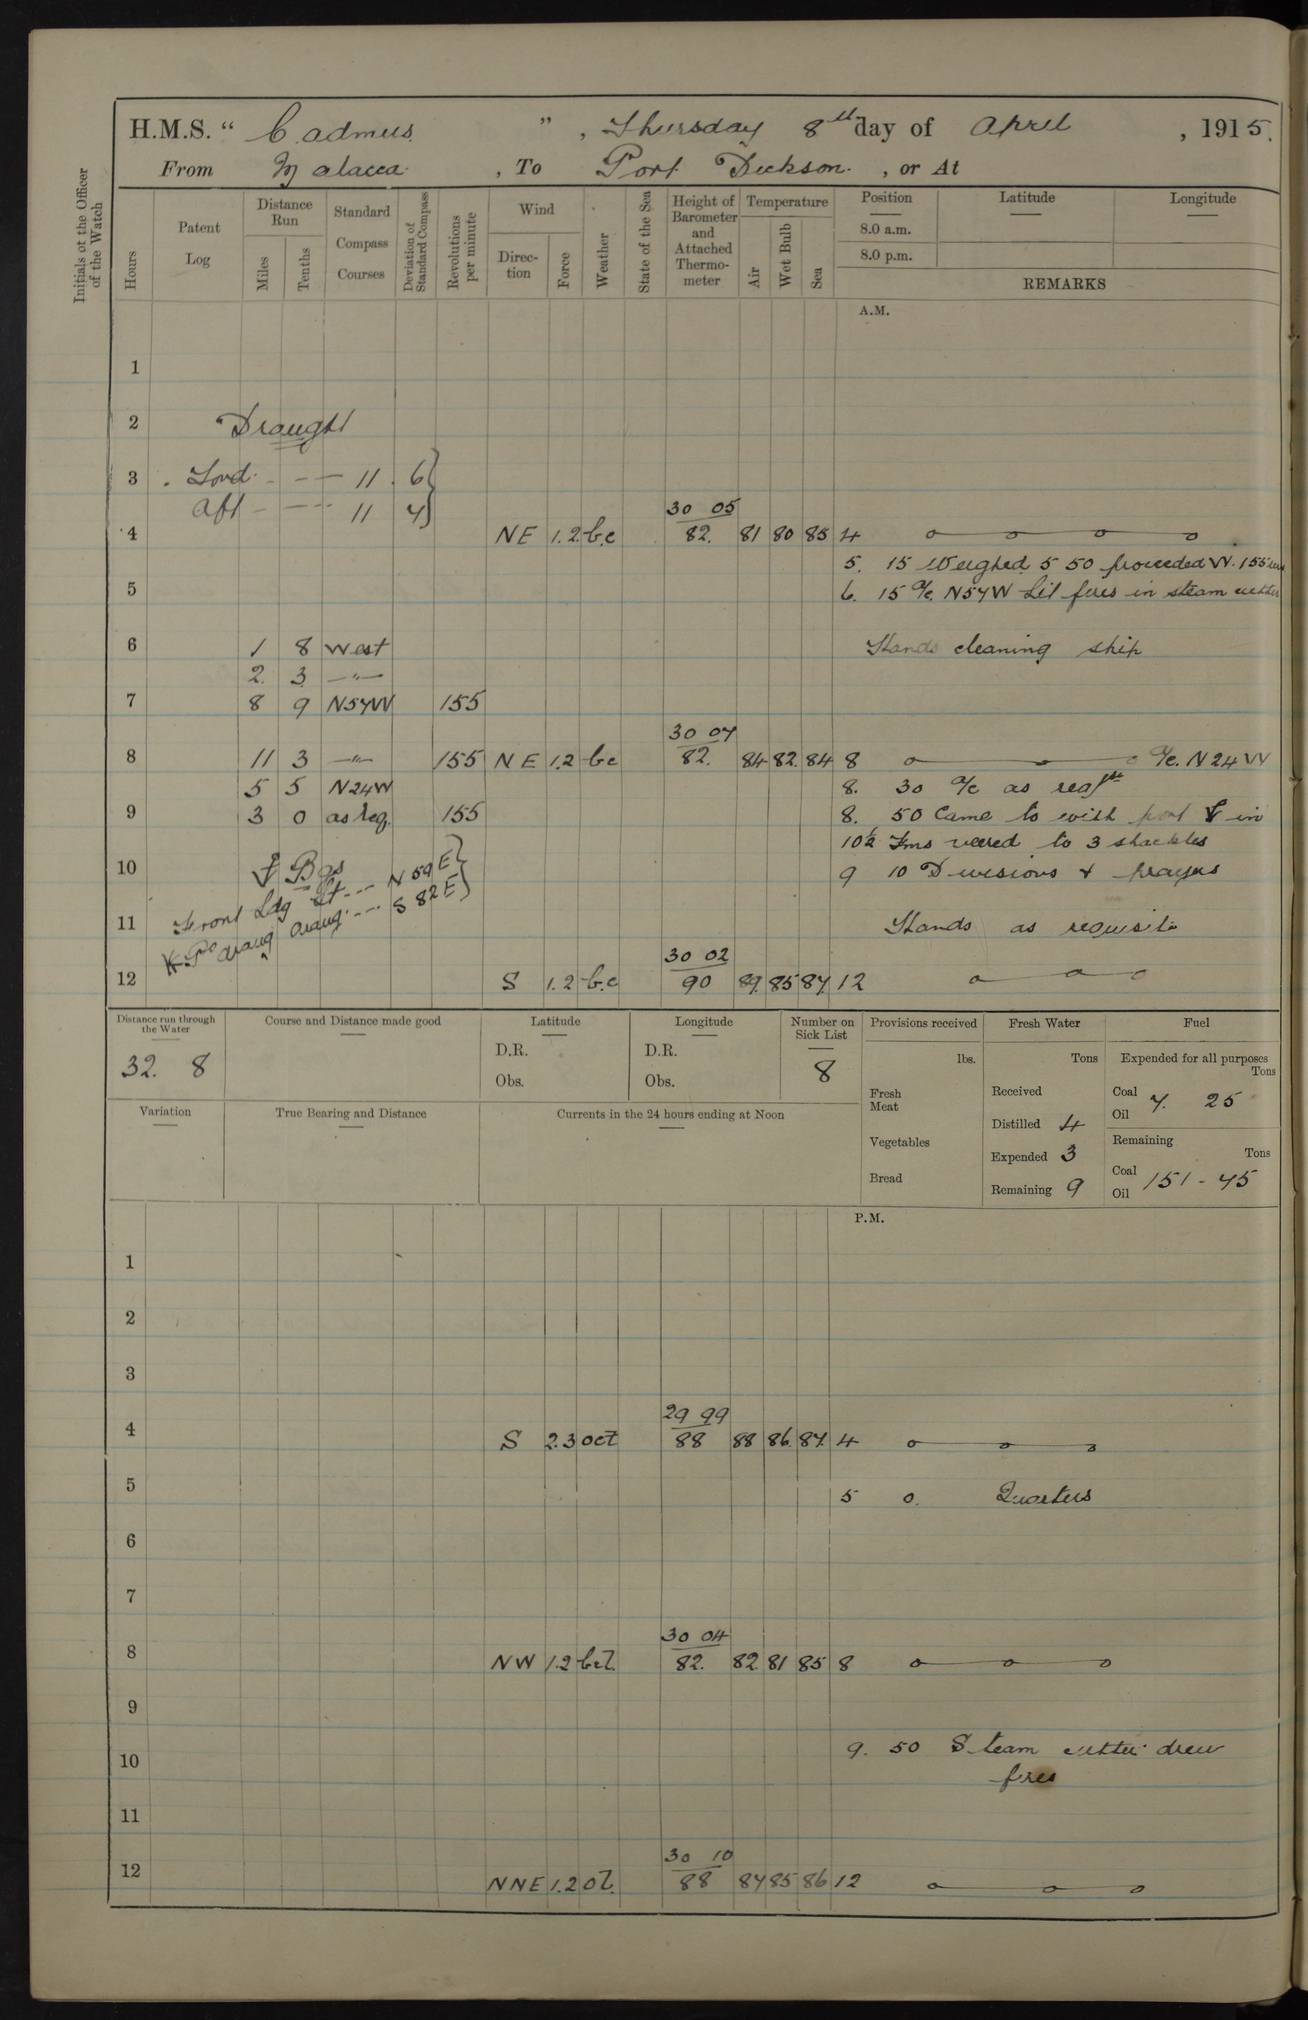 H.M.S. "Cadmus", Thursday 8th day of April, 1915.
From Malacca, To Port Dickson, or At
Initials of the Officer of the Watch
Hours
Patent Log
Distance Run
Miles
Tenths
Standard Compass Courses
Deviation of Standard Compass
Revolutions per minute
Wind
Direction
Force
Weather
State of the Sea
Height of Barometer and Attached Thermometer
Temperature
Air
Wet Bulb
Sea
Position
8.0 a.m.
8.0 p.m.
Latitude
Longitude
REMARKS
A.M.
1
2 Draught
3 Ford 11 . 6
Aft 11 7
30 05
4 NE 1.2 b.c 82. 81 80 85 4
5. 15 Weighed 5 50 proceeded W. 155 revs
5 6. 15 A/c. N57W Lit fires in steam cutter
6 1 8 West Hands cleaning ship
2. 3 —"—
7 8 9 N57W 155
30 07
8 11 3 —"— 155 NE 1.2 bc 82. 84 82 84 8 A/c. N24W
5 5 N24W 8. 30 A/c as reqte
9 3 0 as req. 155 8. 50 Came to with port ⚓ in
10½ Fms veered to 3 shackles
10 ⚓ Bgs 9 10 Divisions & prayers
Front Ldg Lt --- N 59 E
11 Hands as requisite
Po Arang Arang --- S 82 E
30 02
12 S 1.2 b.c 90 89. 85 87. 12
Distance run through the Water
32. 8
Course and Distance made good
Latitude
D.R.
Obs.
Longitude
D.R.
Obs.
Number on Sick List
8
Provisions received
lbs.
Fresh Meat
Vegetables
Bread
Fresh Water
Tons
Received
Distilled 4
Expended 3
Remaining 9
Fuel
Expended for all purposes
Tons
Coal 7. 25
Oil
Remaining
Tons
Coal 151 - 75
Oil
Variation
True Bearing and Distance
Currents in the 24 hours ending at Noon
P.M.
1
2
3
29 99
4 S 2.3 oct 88 88 86. 87. 4
5 5 0. Quarters
6
7
30 04
8 NW 1.2 bcl. 82. 82 81 85 8
9
9. 50 Steam cutter drew
10 fires
11
30 10
12 NNE 1.2 ol. 88 87 85 86 12